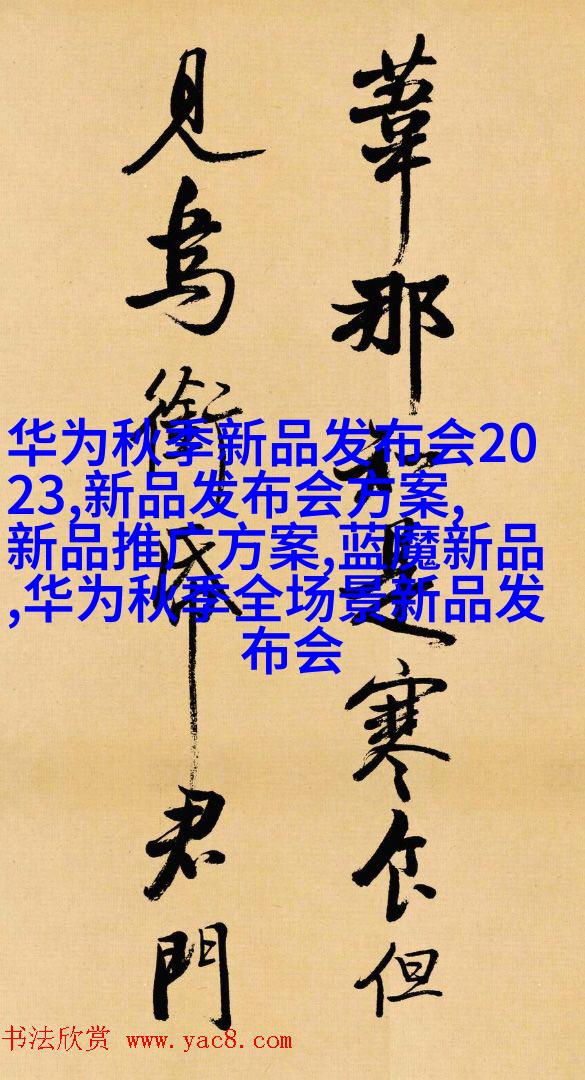 葦那知是寒食但
見烏銜帋君門
华为秋季新品发布会20
23,新品发布会方案,
新品推广方案,蓝魔新品
,华为秋季全场景新品发
布会
书法欣赏 www.yac8.com